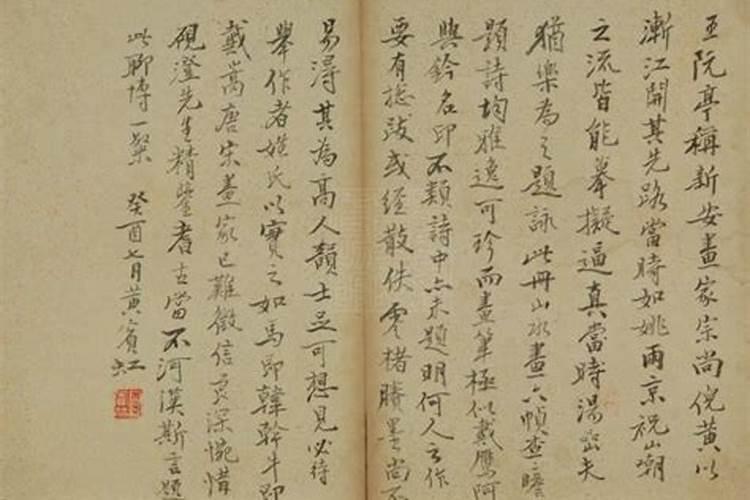 王阮亭稱新安畫家宗尚倪黃以
漸江開其先路當時如姚雨京祝山嘲
之流皆能摹擬逼真當時湯岩夫
猶樂為之題詠此冊山水畫六幀查二瞻
題詩均雅逸可珍而畫筆極似戴鷹阿
與鈐名印不類詩中亦未題明何人之作
要有摠跋或經散佚零楮賸墨尚不
易得其為高人韻士足可想見必待
舉作者姓氏以實之如馬即韓幹牛即
戴嵩唐宋畫家已難徵信良深惋惜
硯澄先生精鑒耆古當不河漢斯言題
此聊博一粲 癸酉七月黃賓虹